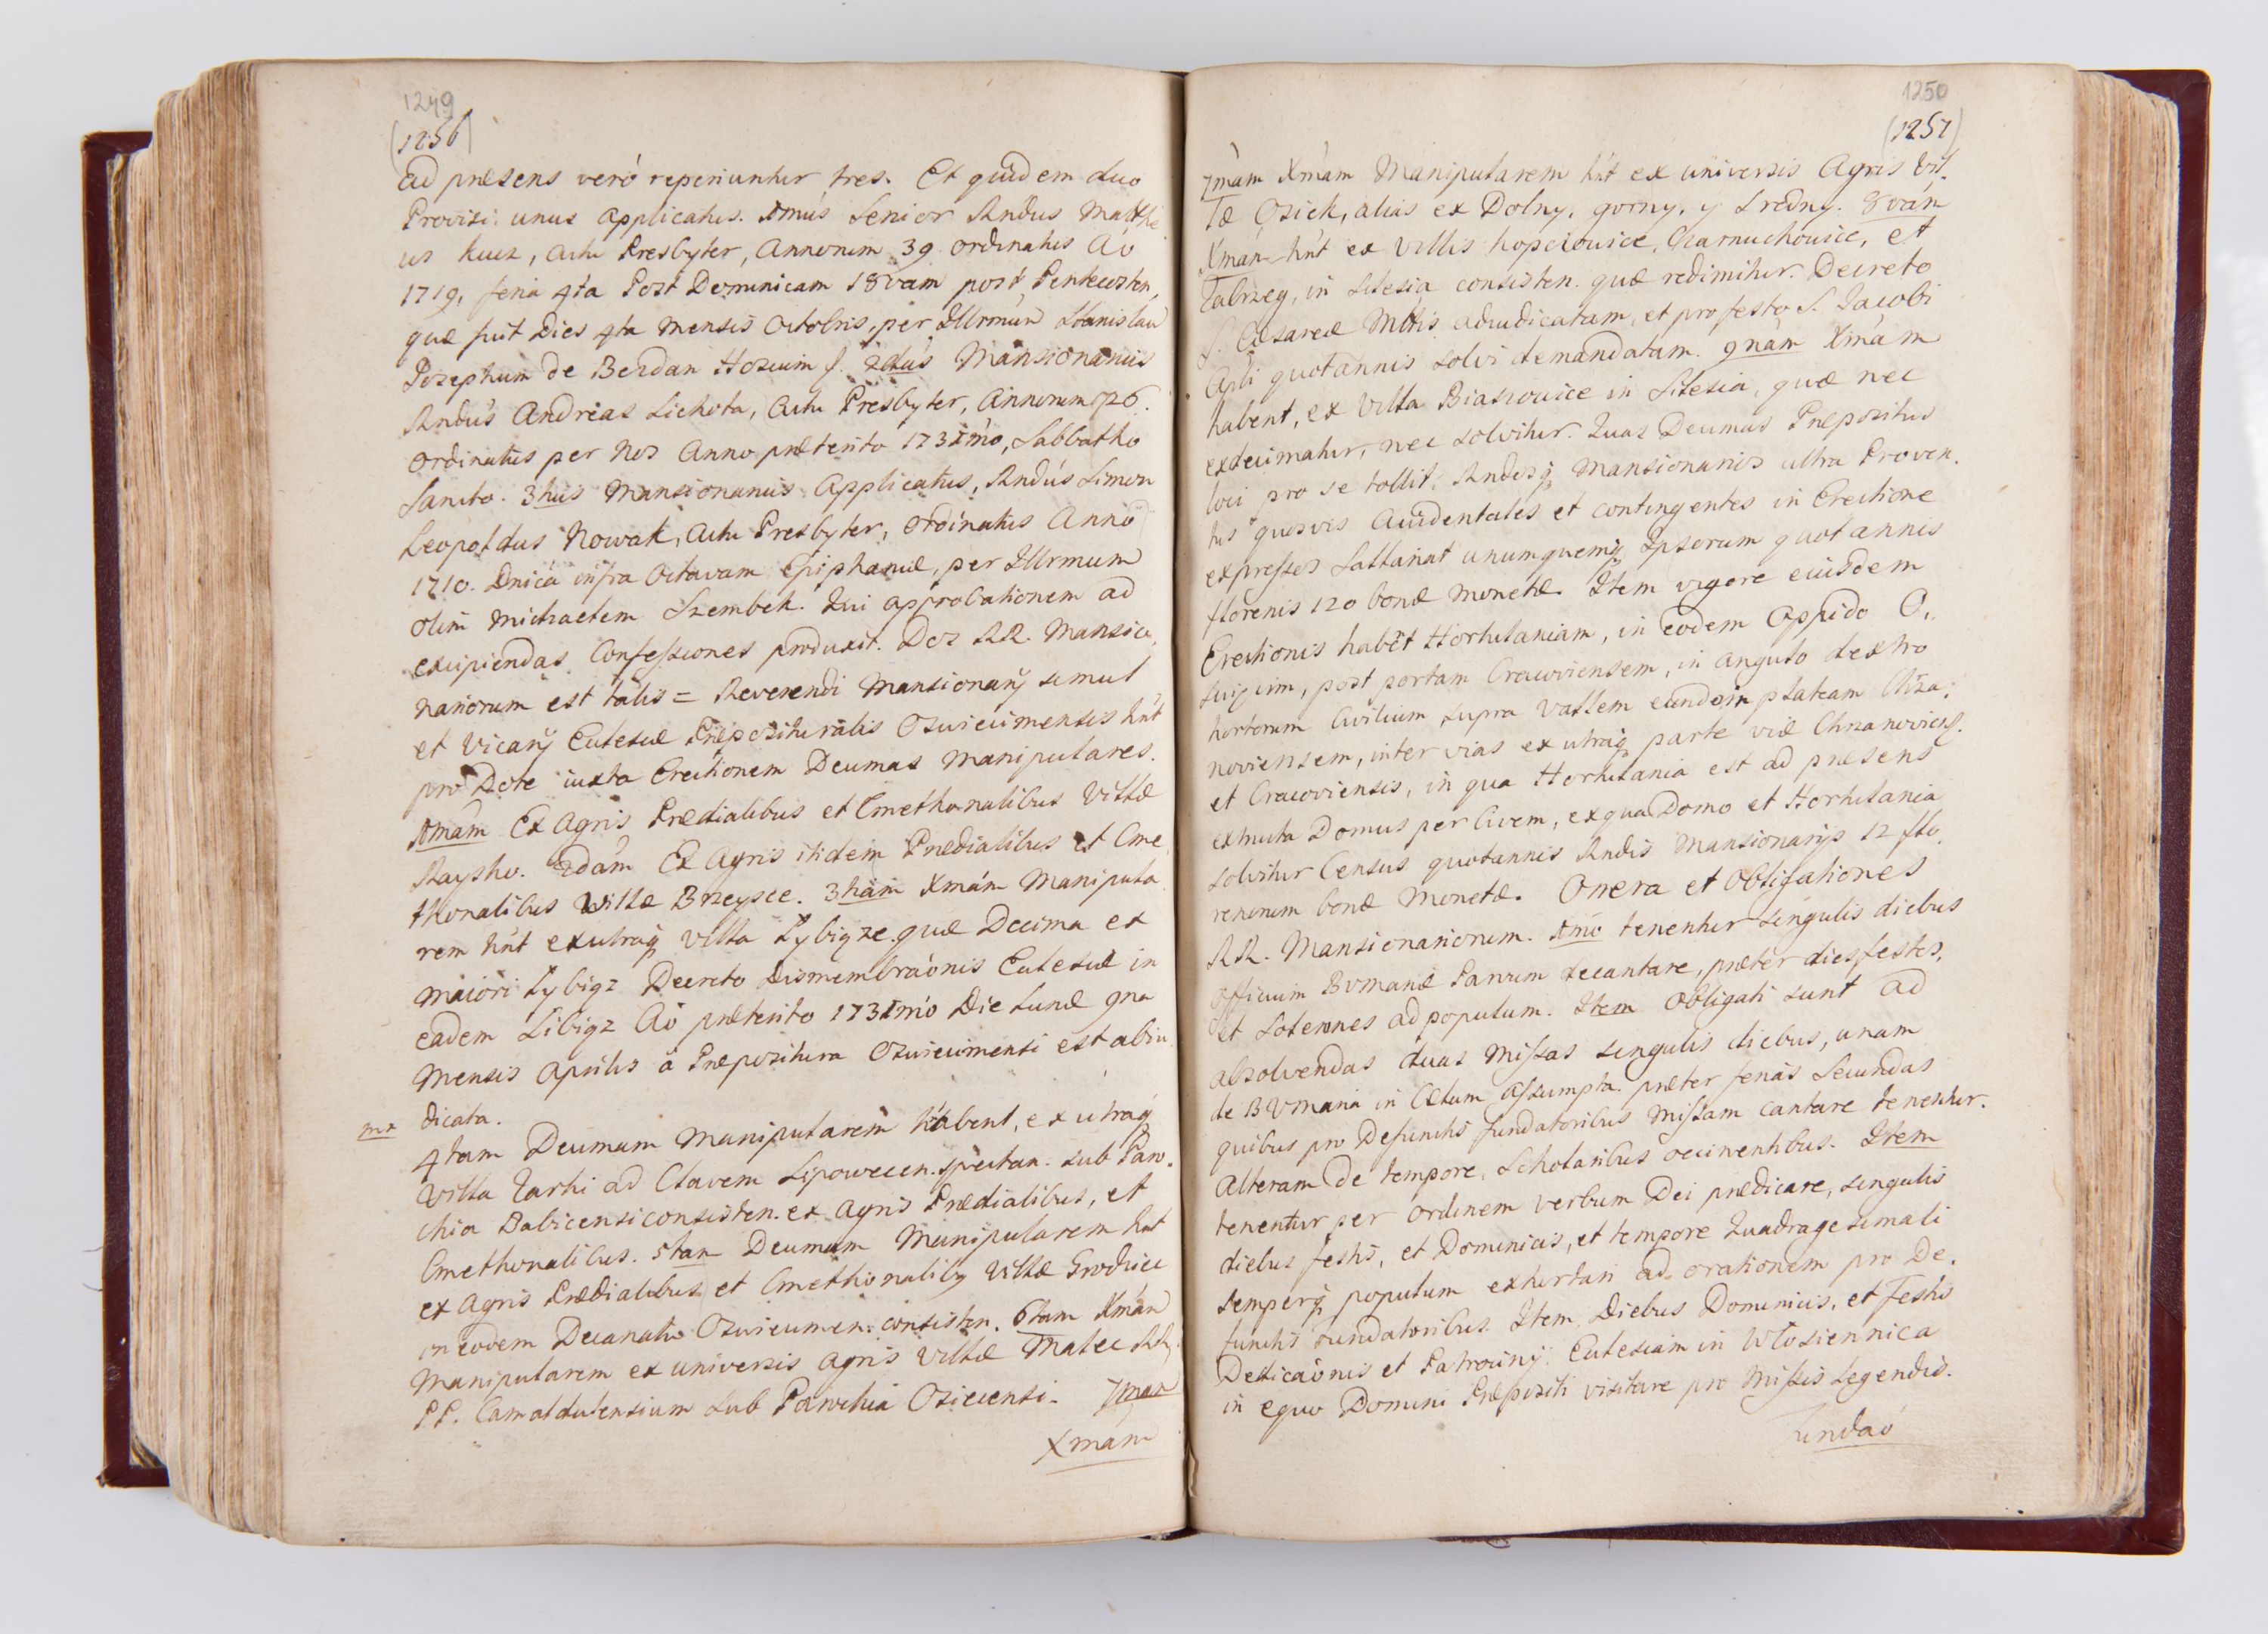 1249
(1256)
ad præsens veró reperiuntur tres. Et quidem duo
Provisi. unus applicatus. Xmús Senior Rndus Matthæ
us Kucz, actu Presbyter, Annorum 39 ordinatus Aó
1719, feria 4ta Post Dominicam 18vam post Pentecosten,
quæ fuit Dies 4ta mensis Octobris, per Illrmúm Stanislaú
Josephum de Bezdan Hosium f. 2dús Mansionarius
Rndús Andreas Lichota, Actu Presbyter, Annorum 26.
ordinatus per Nos Anno præterito 173Xmo, Sabbatho
Sancto. 3tius Mansionarius Applicatus, Rndús Simon
Leopoldus Nowak, Actu Presbyter, ordinatus Anno
1710. Dnicá infra Octavam Epiphaniæ, per Illrmum
olim Michaelem Szembek. Qui approbationem ad
excipiendas Confessiones produxit. Dos RR. Mansio,
nariorum est talis = Reverendi Mansionarÿ simul
et Vicarÿ Ecclesiæ Præposituralis Oswiecimensis hńt
pro Dote iuxta Erectionem Decimas Manipulares.
Xmam Ex Agris Prædialibus et Cmethonalibus Villæ
Raysko. 2dám Ex Agris itidem Prædialibus et Cme,
thonalibus Villæ Brzeysce. 3tiam Xmám Manipula
rem hńt exutraq villa Lybiąze quæ Decima ex
maiori Lybiąz Decreto dismembraónis Ecclesiæ in
eadem Libiąz Aó præterito 173Xmó Die Lunæ 9na
Mensis Aprilis á Præpositura Oswiecimensi est abiu
dicata.
4tam Decimam Manipularem habent, ex utraq
Villa Jarki ad Clavem Lipowecen. spectan. sub Paro,
chia Babicensi consisten. ex Agris Prædialibus, et
Cmethonalibus. 5tam Decimam Manipularem hńt
ex Agris Prædialibus et Cmethonalibq Villæ Grodziec
in eodem Decanatu Oswiecimen. consisten. 6tam Xmám
Manipularem ex universis Agris Villæ Malec RR,
PP. Camaldulensium sub Parochia Osiecensi. 7mam
Xmam
1250
(1257)
7mám Xmám Manipularem hńt ex universis Agris Vil,
læ Osiek, alias ex Dolny, gorny, y sredny. 8vám
Xmám hńt ex Villis Kopciowice, Charnuchowice, et
Zabrzeg, in Silesia consisten. quæ redimitur. Decreto
S. Cæsareæ Mttis adiudicatam, et pro festo S. Jacobi
Apli quotannis solvi demandatam. 9nám Xmám
habent, ex Villa Biasowice in Silesia, quæ nec
extecimatur, nec solvitur. Quas Decimas Præpositus
loci pro se tollit. Rndisq Mansionariis ultra Proven,
tus quosvis Accidentales et contingentes in Erectione
expressos Sallariat unumquemq Ipsorum quotannis
florenis 120 bonæ monetæ. Item vigore eiusdem
Erectionis habét Hortulaniam, in eodem Oppido O,
swięcim, post portam Cracoviensem, in angulo dextro
hortorum Civilium supra Vallem eundo in plateam Chrza,
noviensem, inter vias ex utraq parte viæ Chrzanoviens.
et Cracoviensis, in qua Hortulania est ad præsens
extructa Domus per Civem, ex qua Domo et Hortulania
solvitur Census quotannis Rndis Mansionarÿs 12 flo,
renorum bonæ Monetæ. Onera et Obligationes
RR. Mansionariorum. Xmo tenentur singulis diebus
officium BVmariæ Parvum decantare, præter dies festos,
et solemnes ad populum. Item obligati sunt ad
absolvendas duas Missas singulis diebus, unam
de BVMaria in Cælum Assumpta præter ferias Secundas
quibus pro Defunctis fundatoribus Missam cantare tenentur.
Alteram De tempore, Scholaribus occinentibus. Item
tenentur per ordinem verbum Dei prædicare, singulis
diebus festis, et Dominicis, et tempore Quadragesimali
semperq populum exhortari ad orationem pro De,
functis fundatoribus. Item Diebus Dominicis, et Festis
Dedicaónis et Patrocinÿ Ecclesiam in Włosiennica
in equo Domini Præpositi visitare pro Missis Legendis.
Fundaó